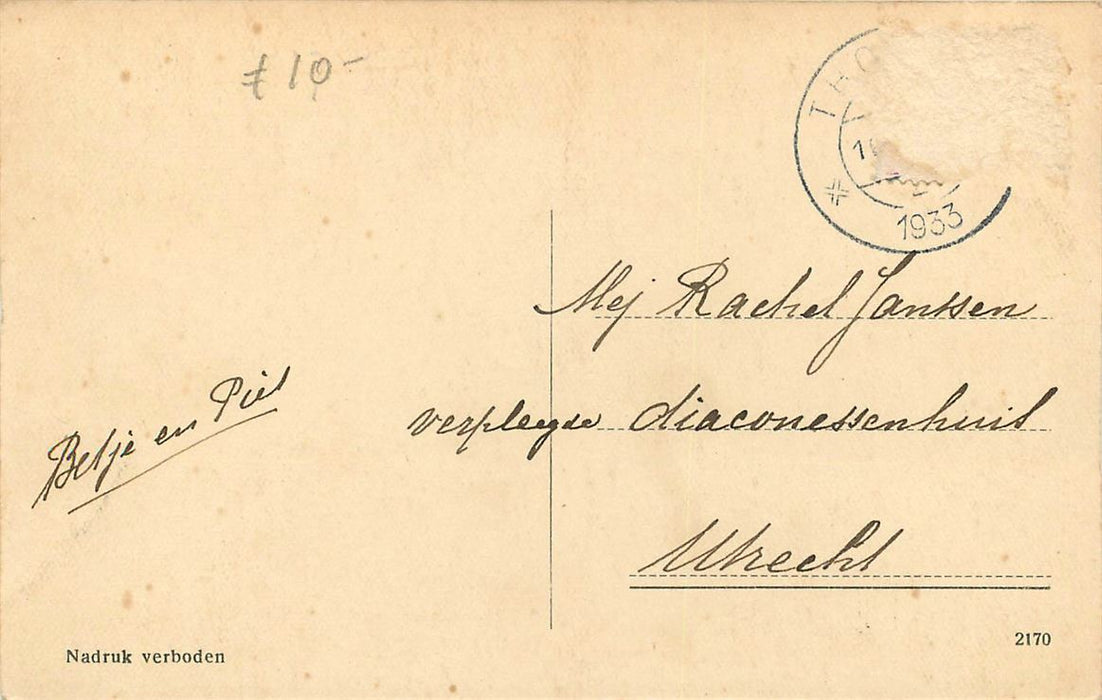 € 10-
1933
Mej Rachel Janssen
verpleegde diaconessenhuis
Utrecht
Betje en Piet
2170
Nadruk verboden